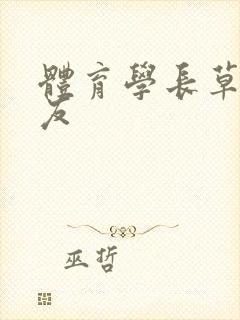 體育學長草
友
巫哲